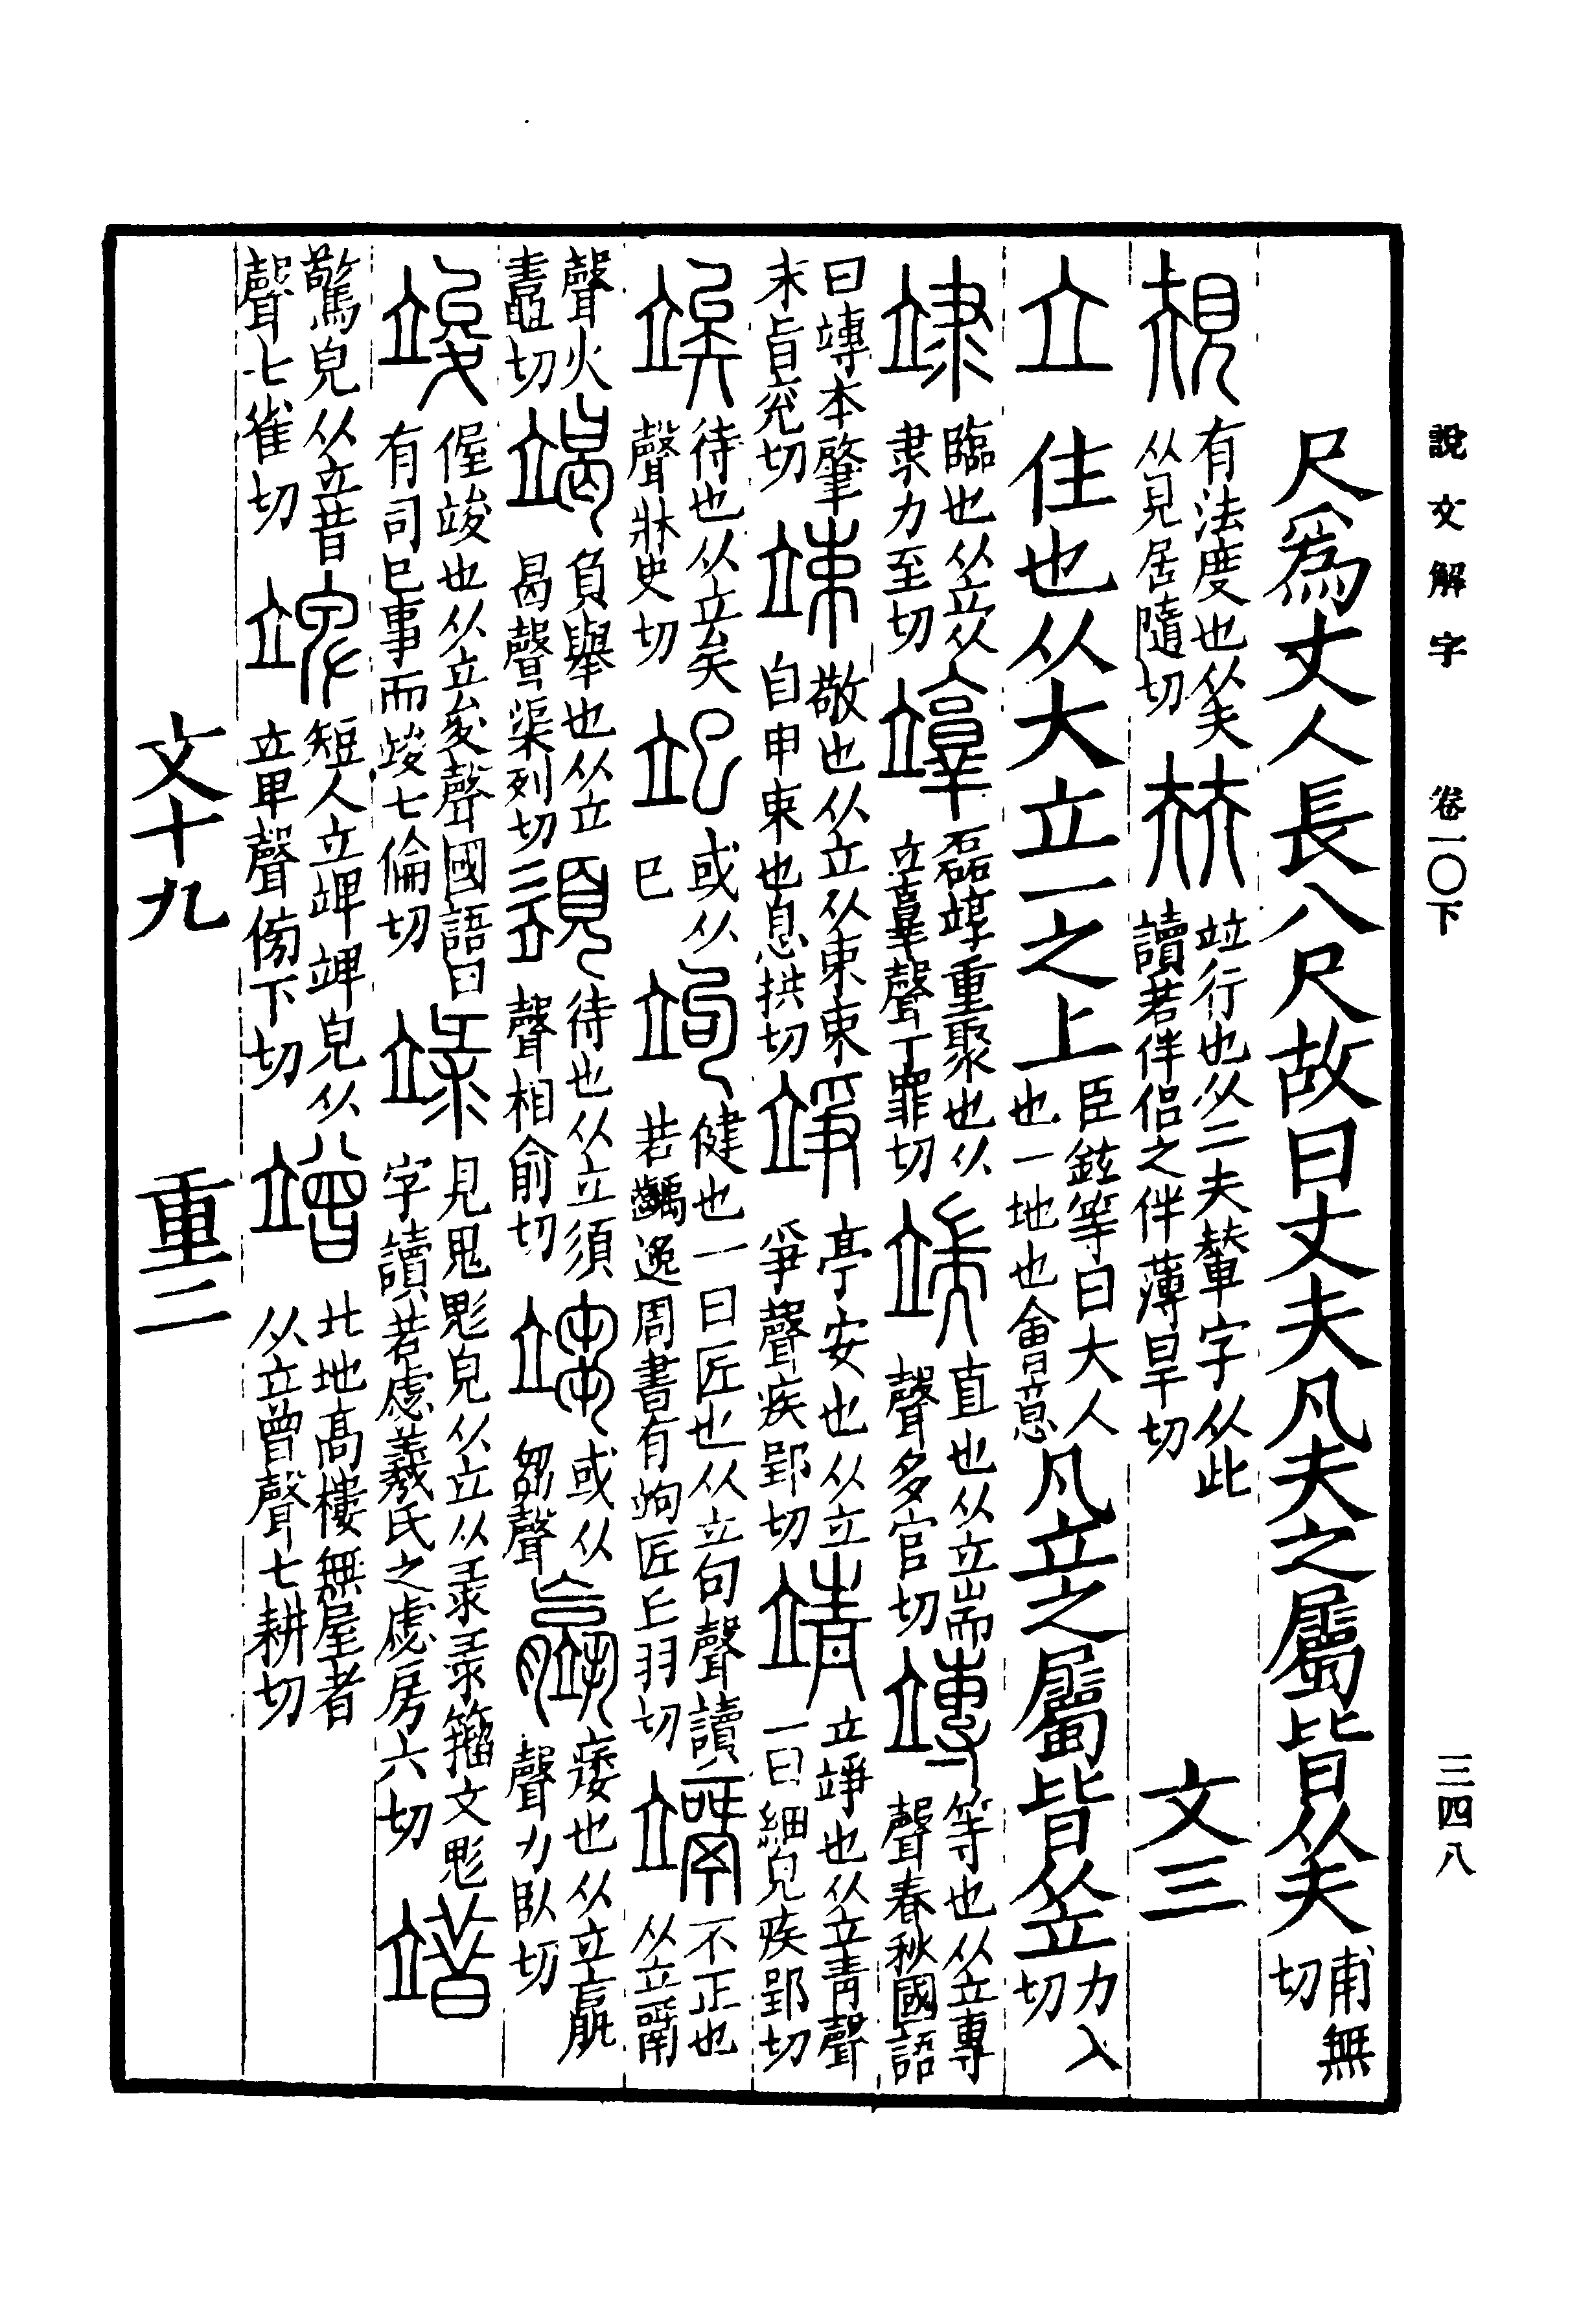 說文解字 卷一〇下 三四八
尺爲丈人長八尺故曰丈夫凡夫之屬皆从夫甫無切
規有法度也从夫从見居隨切㚘竝行也从二夫輦字从此讀若伴侶之伴薄旱切 文三
立住也从大立一之上臣鉉等曰大人也一地也會意凡立之屬皆从立力入切
𥪂臨也从立从隶力至切𥫍磊𥫍重聚也从立𦎫聲丁罪切端直也从立耑聲多官切竱等也从立專聲春秋國語
曰竱本肇末旨兖切竦敬也从立从束束自申束也息拱切竫亭安也从立爭聲疾郢切靖立竫也从立青聲一曰細皃疾郢切
竢待也从立矣聲牀史切𥩳或从巳竘健也一曰匠也从立句聲讀若齲逸周書有竘匠丘羽切䇤不正也从立𠷎
聲火䵷切竭負舉也从立曷聲渠列切䇓待也从立須聲相俞切𥪩或从芻聲𥫃痿也从立𣎆聲力臥切
竣偓竣也从立夋聲國語曰有司已事而竣七倫切䇐見鬼鬽皃从立从彔彔籒文鬽字讀若虙羲氏之虙房六切䇎
驚皃从立昔聲七雀切䇑短人立䇑䇑皃从立卑聲傍下切竲北地高樓無屋者从立曾聲七耕切
文十九 重二